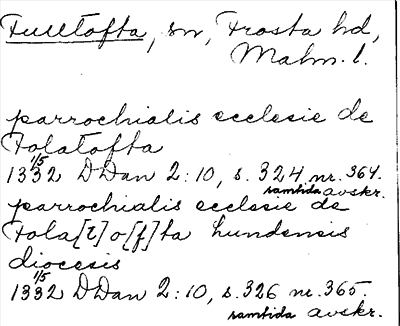 Fulltofta, sn, Frosta hd,
Malm. l.
parrochialis ecclesie de
Folatofta
1/5
1332 DDan 2:10, s. 324 nr. 364.
samtida avskr.
parrochialis ecclesie de
Fola[t]o[f]ta lundensis
diocesis
1/5
1332 DDan 2:10, s. 326 nr. 365.
samtida avskr.